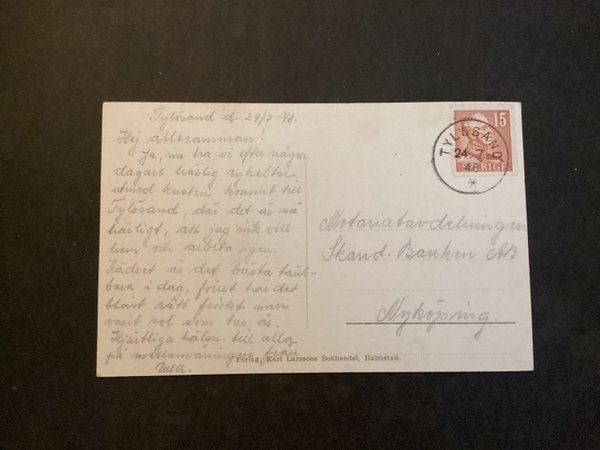 Tylösand d. 24/7 -48.
Hej allesammans!
Ja, nu ha vi efter några
dagars härlig cykeltur
utmed kusten kommit till
Tylösand, där det är så
härligt, att jag ej vill
hem och arbeta igen.
Vädret är det bästa tänk-
bara i dag, förut har det
blåst rätt friskt men
varit sol som tur är.
Hjärtliga häln. till alla
på avdelningen från
15
TYLÖSAND
24. 7
48
SVERIGE
Notariatavdelningen
Skand. Banken AB
Nyköping.
Förlag: Karl Larssons Bokhandel, Halmstad.